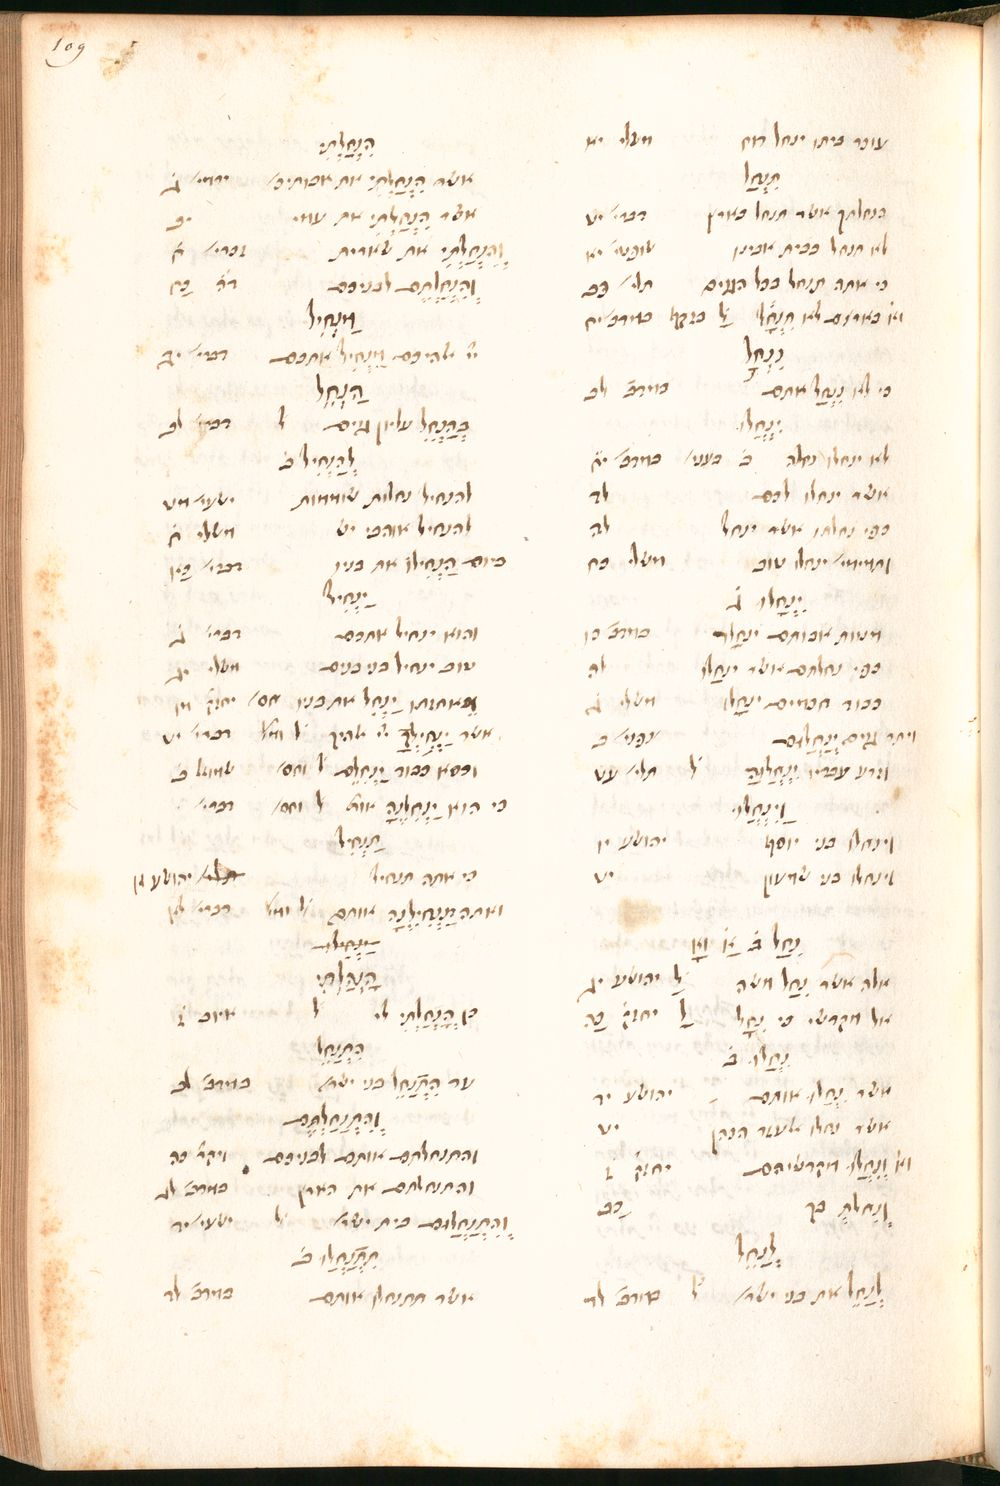 109
עוכר ביתו ינחל רוח משלי יא
תִנְחַל
בנחלתך אשר תנחל בארץ דברי' יט
לא תנחל בבית אבינו שופטי' יא
כי אתה תנחל בכל הגוים תלי' פב
בארצם לא תִנְחָל במדבר יח
נִנְחָל
כי לא נִנְחַל אתם במדב' לב
יִנְחֲלוּ
לא ינחלו נחלה ב בעני' במדב' יח
אשר ינחלו לכם לד
כפי נחלתו אשר ינחל לה
ותמימי' ינחלו טוב משלי כח
יִנְחָלוּ ג
מטות אבותם ינחלו במדב' כו
כפי נחלתם אשר ינחלו לה
כבוד חכמים ינחלו משלי ג
ויתר גוים יִנְחָלוּם צפני' ב
וזרע עבדיו יִנְחָלוּהָ ל תלי' סט
וַיִנְחֲלוּ
וינחלו בני יוסף יהושע יו
וינחלו בני שמעון יט
נִחַל ב
אלה אשר נִחַל משה יהושע יג
אל מקדשי כי נִחָל
נִחֲלוּ ב
אשר נִחֲלוּ אותם יהושע יד
אשר נחלו אלעזר הכהן יט
וְנִחֲלוּ מקדשיהם יחזק' ז
וְנִחַלְתְ בך כב
לְנַחֵל
לְנַחֵל את בני ישר' ל במדב' לד
הִנְחַלְתִי
אשר הִנְחַלְתִי את אבותיכ' ירמי' ג
אשר הִנְחַלְתִי את עמי יב
וְהִנְחַלְתִי את שארית זכרי' ח
וְהִנְחַלְתֶם לבניכם
מַנְחִיל
יי' אלהיכם מַנְחִיל אתכם דברי' יב
הַנְחֵל
בְהַנְחֵל עליון גוים ל דברי' לב
לְהַנְחִיל ב
להנחיל נחלות שוממות ישעי' מט
להנחיל אוהבי יש משלי ח
ביום הַנְחִילוֹ את בניו דברי' כא
יַנְחִיל
והוא ינחיל אתכם דברי' ג
טוב ינחיל בני בנים משלי יג
מאחזתו יַנְחִל את בניו חס' יחזק' מו
אשר יַנְחִילְךָ יי' אלהיך ל ומל' דברי' יט
וכסא כבוד יַנְחִלֵם ל וחס' שמואל ב
כי הוא יַנְחִלֶנָה ל וחס' דברי'
תַנְחִיל
כי אתה תנחיל יהושע א
ואתה תַנְחִילֶנָה אותם ל ומל' דברי' לא
יַנְחִילוּ
הָנְחַלְתִי
כן הָנְחַלְתִי לי ל איוב ז
הִתְנַחֵל
עד הִתְנַחֵל בני ישר' במדב' לב
וְהִתְנַחַלְתֶם
והתנחלתם אותם לבניכם ויקר' כה
והתנחלתם את הארץ במדב' לג
וְהִתְנַחֲלוּם בית ישר' ל ישעי' יד
תִתְנַחֲלוּ ב
אשר תתנחלו אותם במדב' לד